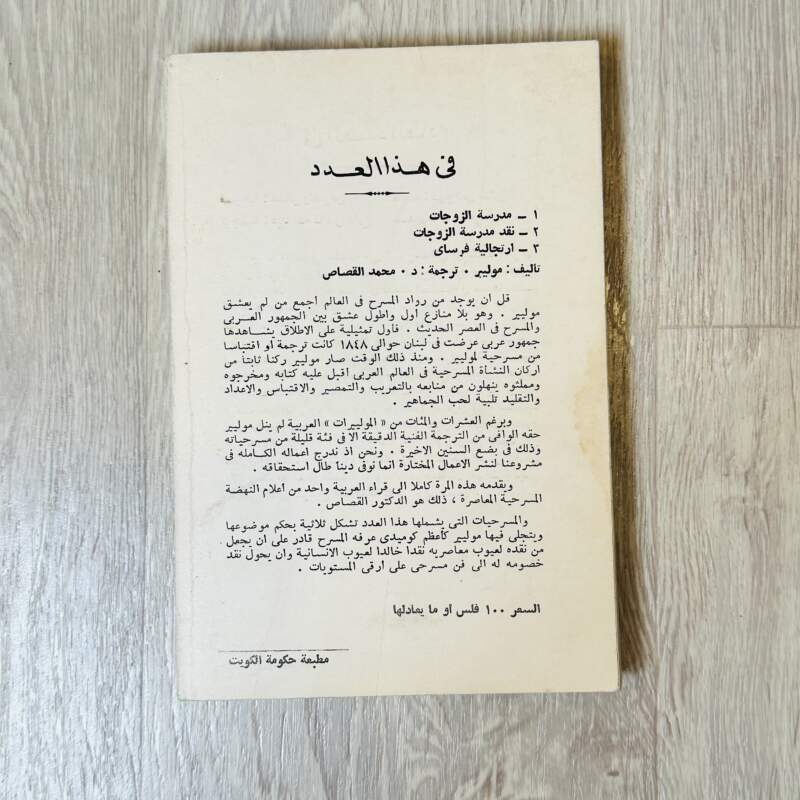 فى هذا العدد
١ - مدرسة الزوجات
٢ - نقد مدرسة الزوجات
٣ - ارتجالية فرساى
تاليف : موليير . ترجمة : د . محمد القصاص
قل ان يوجد من رواد المسرح فى العالم اجمع من لم يعشق
موليير . وهو بلا منازع أول واطول عشق بين الجمهور العربى
والمسرح فى العصر الحديث . فاول تمثيلية على الاطلاق يشاهدها
جمهور عربى عرضت فى لبنان حوالى ١٨٤٨ كانت ترجمة أو اقتباسا
من مسرحية لموليير . ومنذ ذلك الوقت صار موليير ركنا ثابتا من
اركان النشأة المسرحية فى العالم العربى اقبل عليه كتابه ومخرجوه
وممثلوه ينهلون من منابعه بالتعريب والتمصير والاقتباس والاعداد
والتقليد تلبية لحب الجماهير .
وبرغم العشرات والمئات من « الموليیرات » العربية لم ينل موليير
حقه الوافى من الترجمة الفنية الدقيقة الا فى فئة قليلة من مسرحياته
وذلك فى بضع السنين الاخيرة . ونحن اذ ندرج اعماله الكامله فى
مشروعنا لنشر الاعمال المختارة انما نوفى دينا طال استحقاقه .
ويقدمه هذه المرة كاملا الى قراء العربية واحد من أعلام النهضة
المسرحية المعاصرة ، ذلك هو الدكتور القصاص .
والمسرحيات التى يشملها هذا العدد تشكل ثلاثية بحكم موضوعها
ويتجلى فيها موليير كأعظم كوميدى عرفه المسرح قادر على ان يجعل
من نقده لعيوب معاصريه نقدا خالدا لعيوب الانسانية وان يحول نقد
خصومه له الى فن مسرحى على ارقى المستويات .
السعر ١٠٠ فلس او ما يعادلها
مطبعة حكومة الكويت